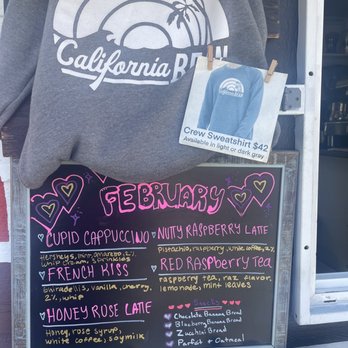 California BREW
Crew Sweatshirt $42
Available in light or dark gray
FEBRUARY
CUPID CAPPUCCINO
Hersheys, amaretto, 2%,
whip cream, sprinkles
FRENCH KISS
vanilla, cherry,
2%, whip
HONEY ROSE LATTE
Honey, rose syrup,
white coffee, soymilk
NUTTY RASPBERRY LATTE
pistachio, raspberry, white coffee, 2%
RED RASPBERRY TEA
raspberry tea, raz flavor,
lemonade, mint leaves
Snacks
Chocolate Banana Bread
Blueberry Banana Bread
Zucchini Bread
Parfait + Oatmeal